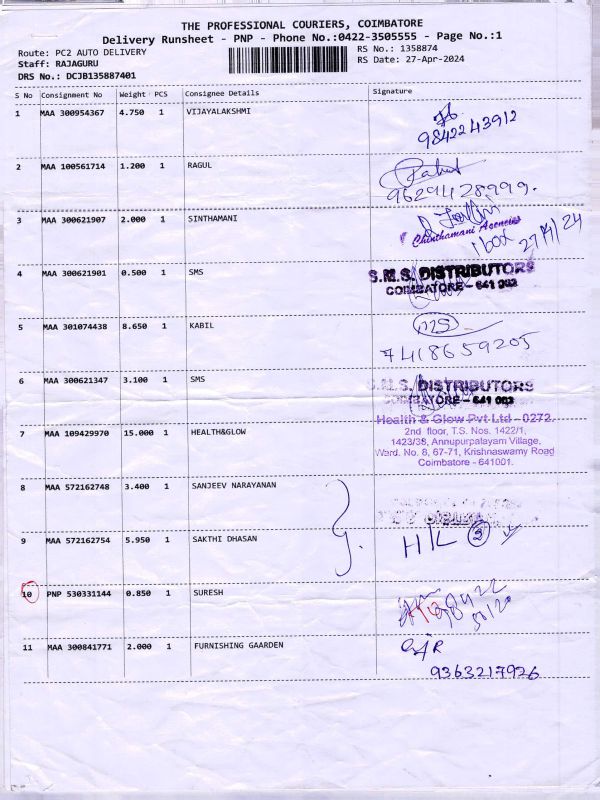 THE PROFESSIONAL COURIERS, COIMBATORE
Delivery Runsheet - PNP - Phone No.:0422-3505555 - Page No.:1
Route: PC2 AUTO DELIVERY
RS No.: 1358874
Staff: RAJAGURU
RS Date: 27-Apr-2024
DRS No.: DCJB135887401
S No Consignment No Weight PCS Consignee Details Signature
1 MAA 300954367 4.750 1 VIJAYALAKSHMI
9842243912
2 MAA 100561714 1.200 1 RAGUL
Rahul
9629428999.
3 MAA 300621907 2.000 1 SINTHAMANI
Chinthamani Agencies
1 box 27/4/24
4 MAA 300621901 0.500 1 SMS
S.M.S. DISTRIBUTORS
COIMBATORE - 641 002
5 MAA 301074438 8.650 1 KABIL
7418659205
6 MAA 300621347 3.100 1 SMS
S.M.S. DISTRIBUTORS
COIMBATORE - 641 002
7 MAA 109429970 15.000 1 HEALTH&GLOW
Health & Glow Pvt Ltd - 0272.
2nd floor, T.S. Nos. 1422/1,
1423/38, Annupurpalayam Village,
Ward. No. 8, 67-71, Krishnaswamy Road
Coimbatore - 641001.
8 MAA 572162748 3.400 1 SANJEEV NARAYANAN
9 MAA 572162754 5.950 1 SAKTHI DHASAN
H/L 2
10 PNP 530331144 0.850 1 SURESH
11 MAA 300841771 2.000 1 FURNISHING GAARDEN
9363217926